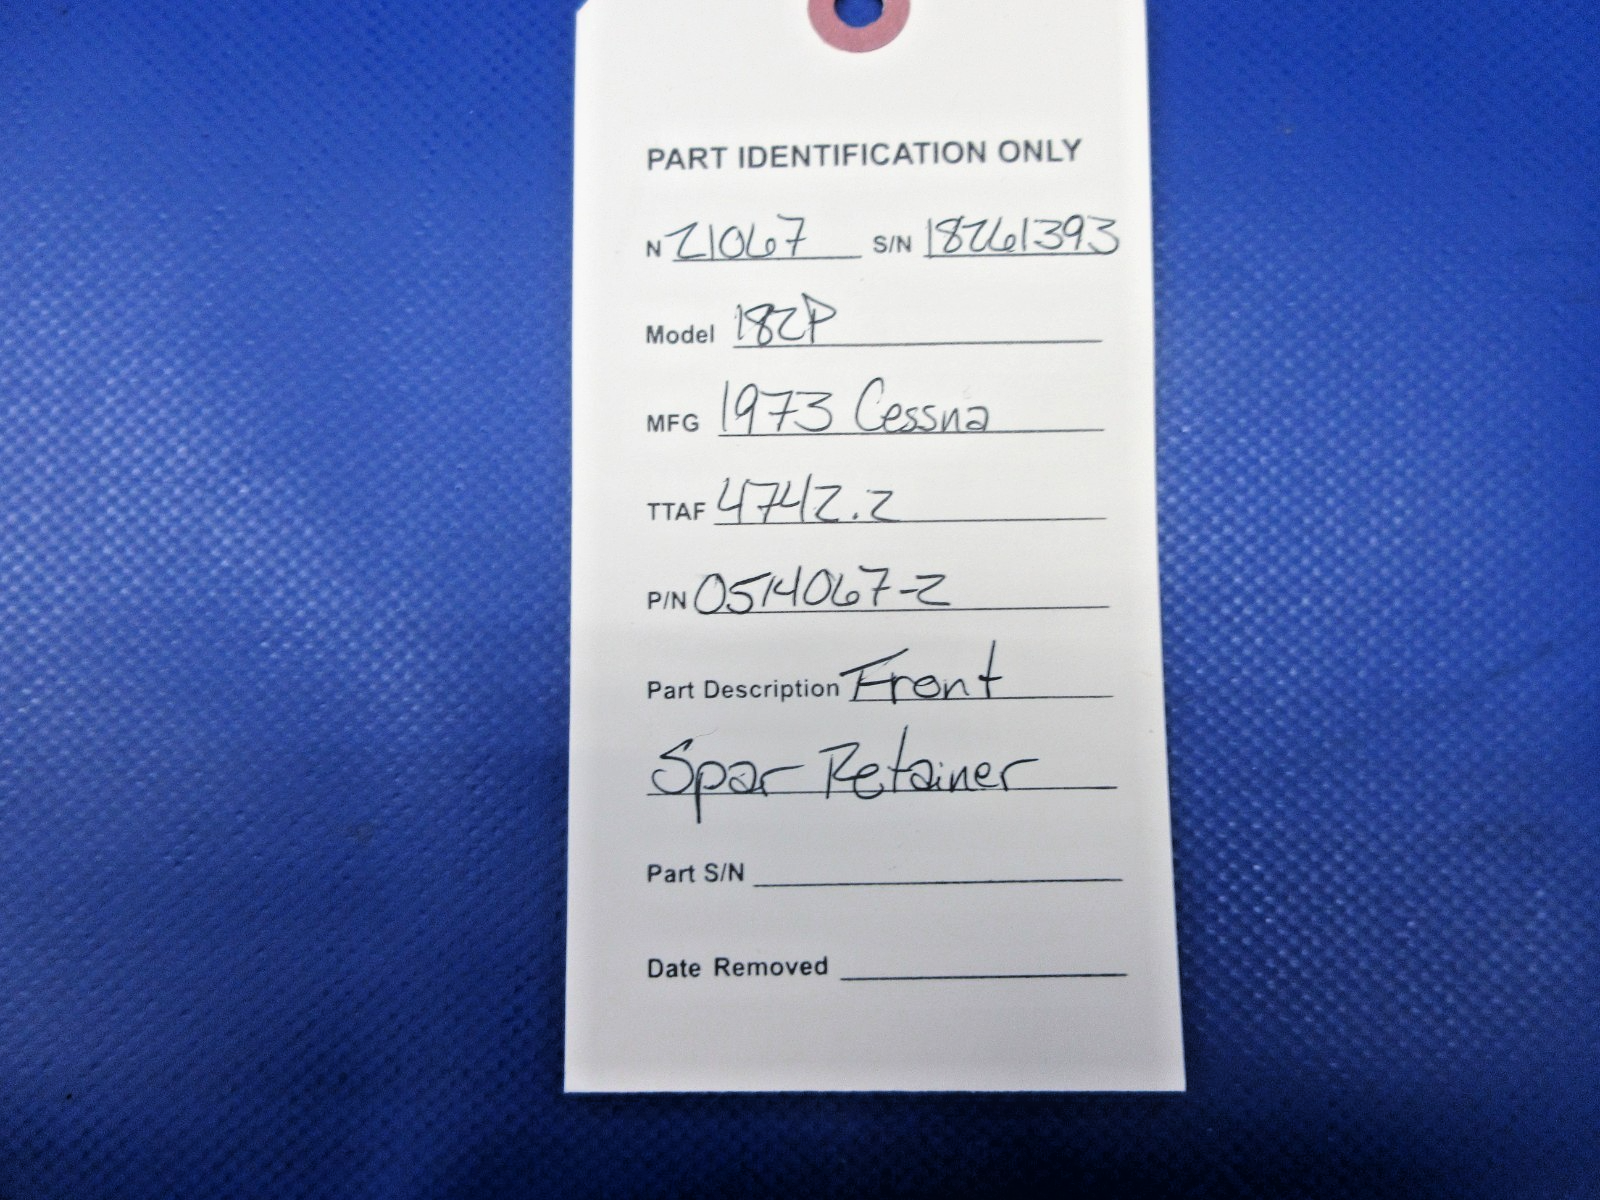 PART IDENTIFICATION ONLY
N 21067 S/N 18261393
Model 182P
MFG 1973 Cessna
TTAF 4742.2
P/N 0514067-2
Part Description Front
Spar Retainer
Part S/N
Date Removed